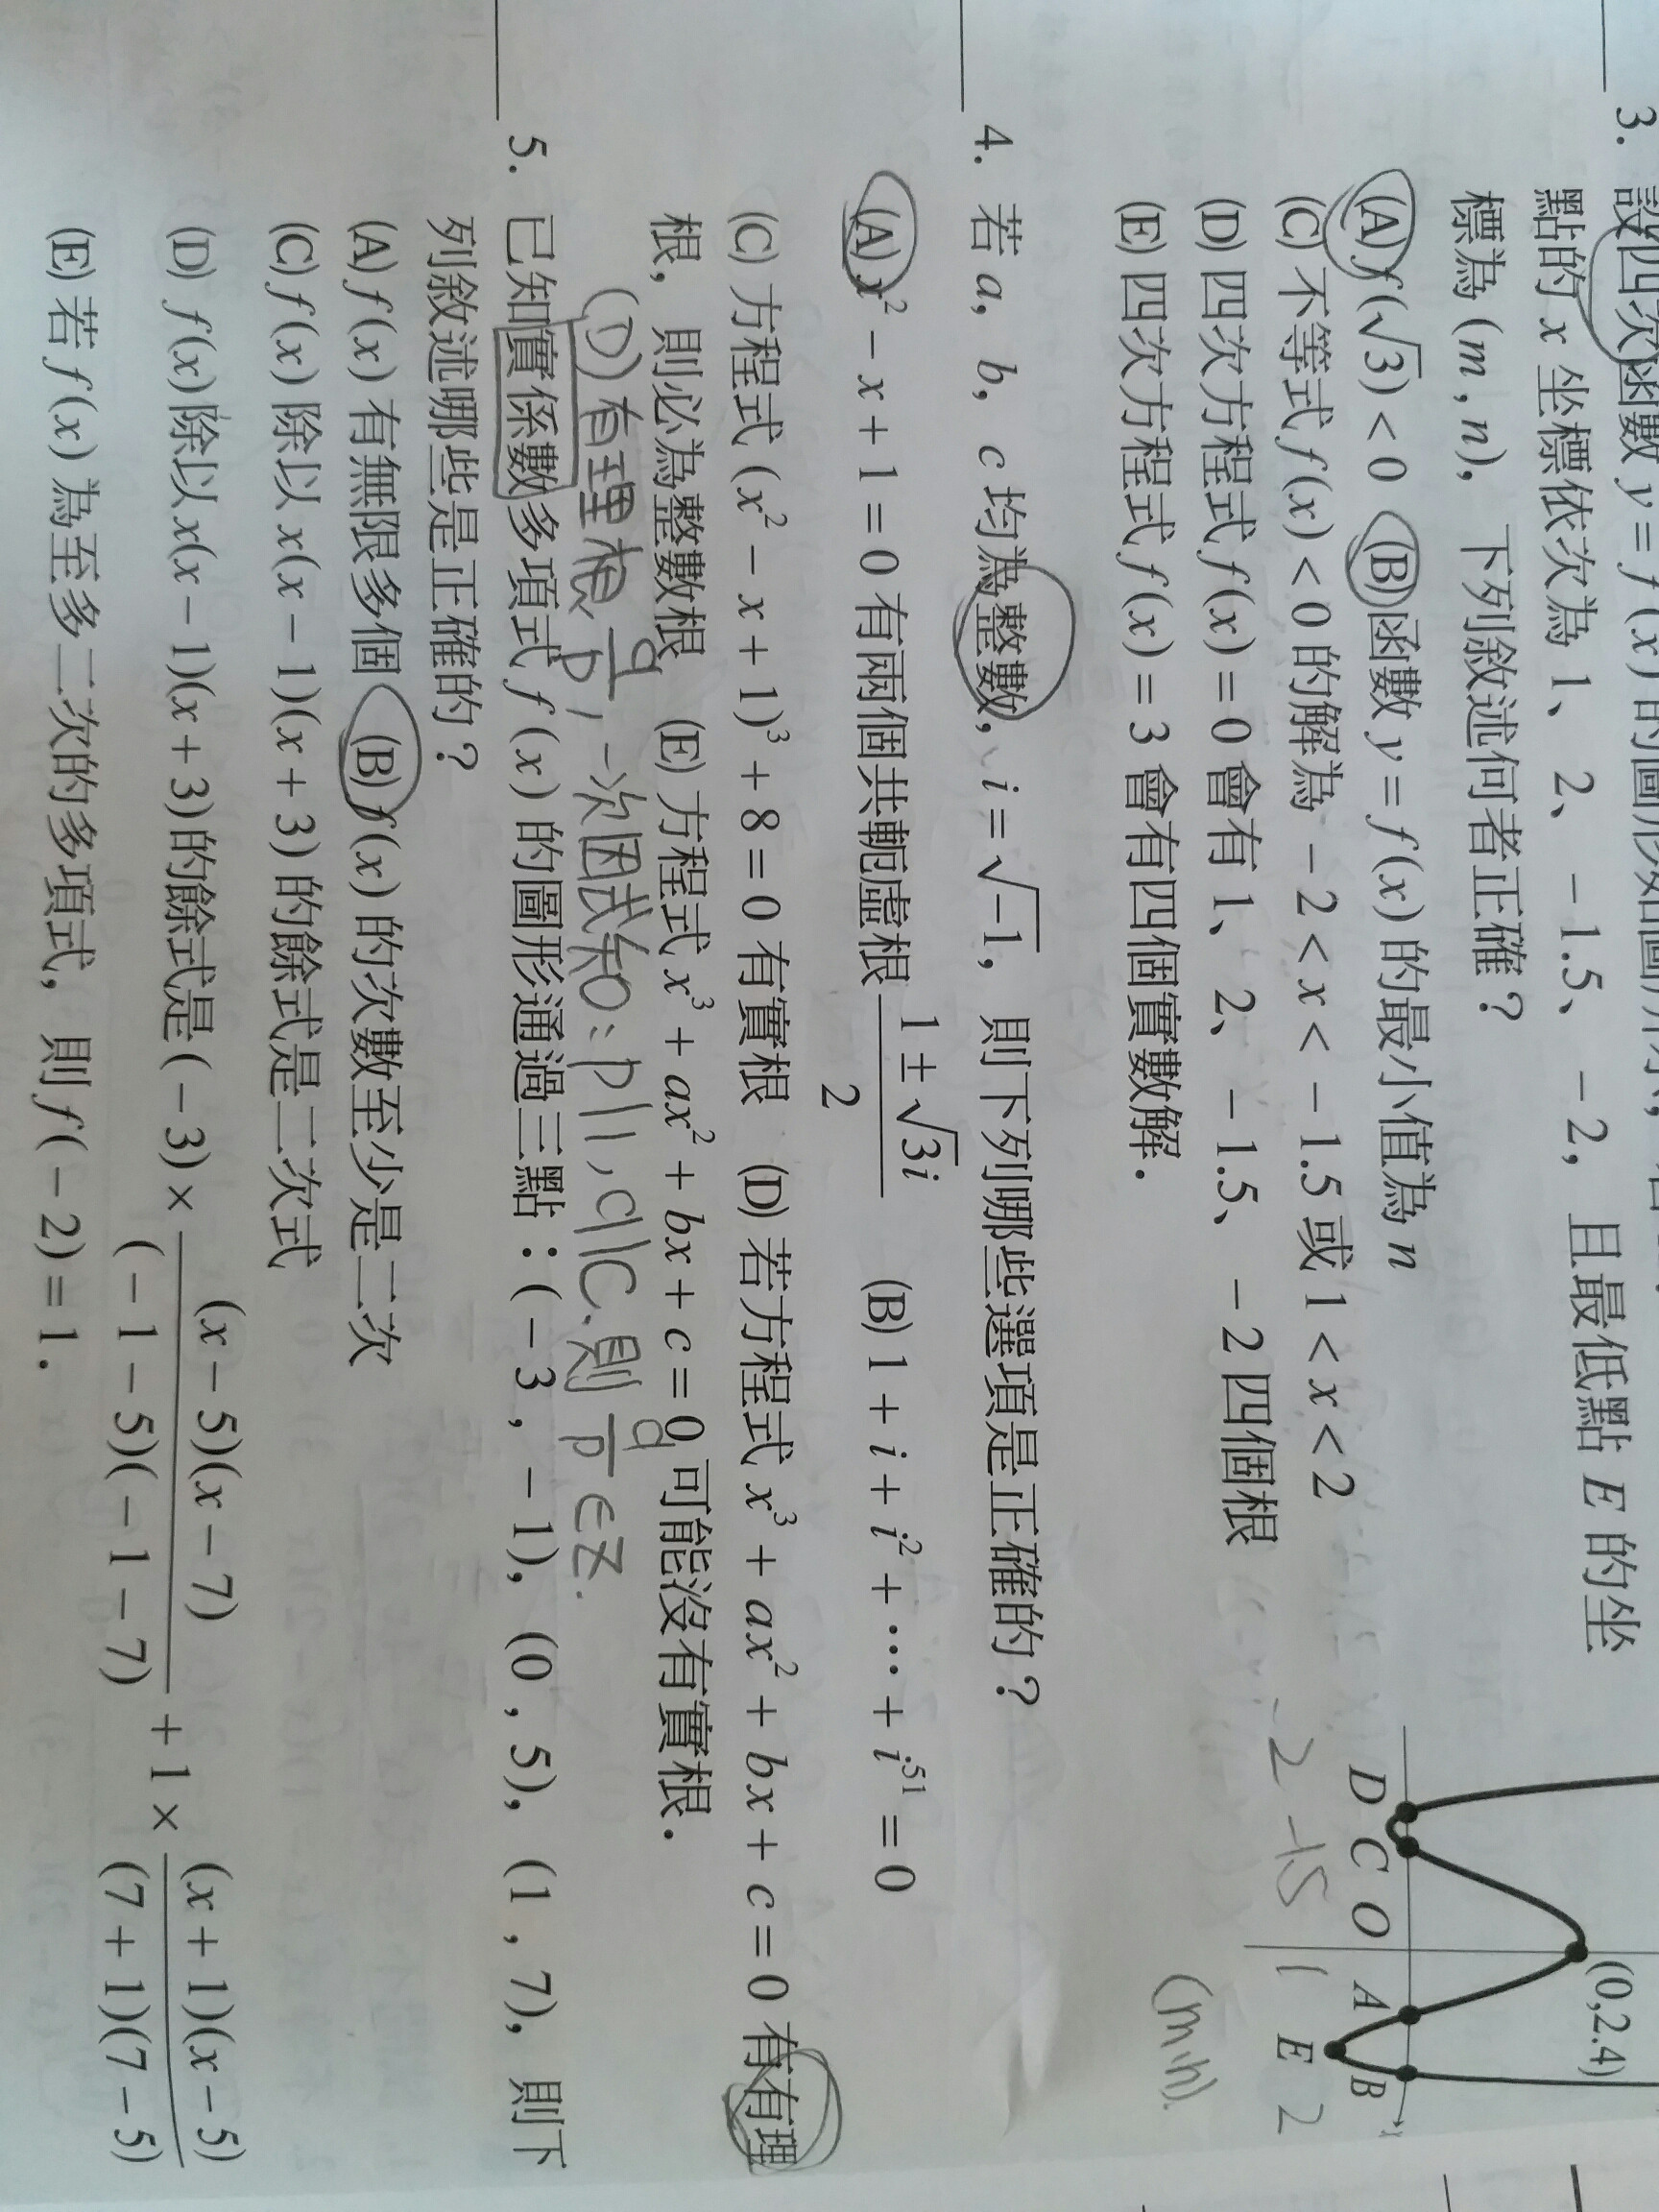 3. 設四次函數 y = f(x) 的圖形如圖所示,
點的 x 坐標依次為 1、2、-1.5、-2, 且最低點 E 的坐
標為 (m, n), 下列敘述何者正確?
(A) f(√3) < 0 (B) 函數 y = f(x) 的最小值為 n
(C) 不等式 f(x) < 0 的解為 -2 < x < -1.5 或 1 < x < 2
(D) 四次方程式 f(x) = 0 會有 1、2、-1.5、-2 四個根
(E) 四次方程式 f(x) = 3 會有四個實數解.
(0,2.4)
D C O A B x
E
-2 -1.5 1 2
(m,n).
4. 若 a, b, c 均為整數, i = √-1, 則下列哪些選項是正確的?
(A) x² - x + 1 = 0 有兩個共軛虛根 (1 ± √3i)/2 (B) 1 + i + i² + … + i⁵¹ = 0
(C) 方程式 (x² - x + 1)³ + 8 = 0 有實根 (D) 若方程式 x³ + ax² + bx + c = 0 有有理
根, 則必為整數根 (E) 方程式 x³ + ax² + bx + c = 0 可能沒有實根.
(D) 有理根 q/p, 一次因式知: p|1, q|c. 則 q/p ∈ Z.
5. 已知實係數多項式 f(x) 的圖形通過三點:(-3, -1), (0, 5), (1, 7), 則下
列敘述哪些是正確的?
(A) f(x) 有無限多個 (B) f(x) 的次數至少是二次
(C) f(x) 除以 x(x - 1)(x + 3) 的餘式是二次式
(D) f(x) 除以 x(x - 1)(x + 3) 的餘式是 (-3) × (x - 5)(x - 7)/(-1 - 5)(-1 - 7) + 1 × (x + 1)(x - 5)/(7 + 1)(7 - 5)
(E) 若 f(x) 為至多二次的多項式, 則 f(-2) = 1.